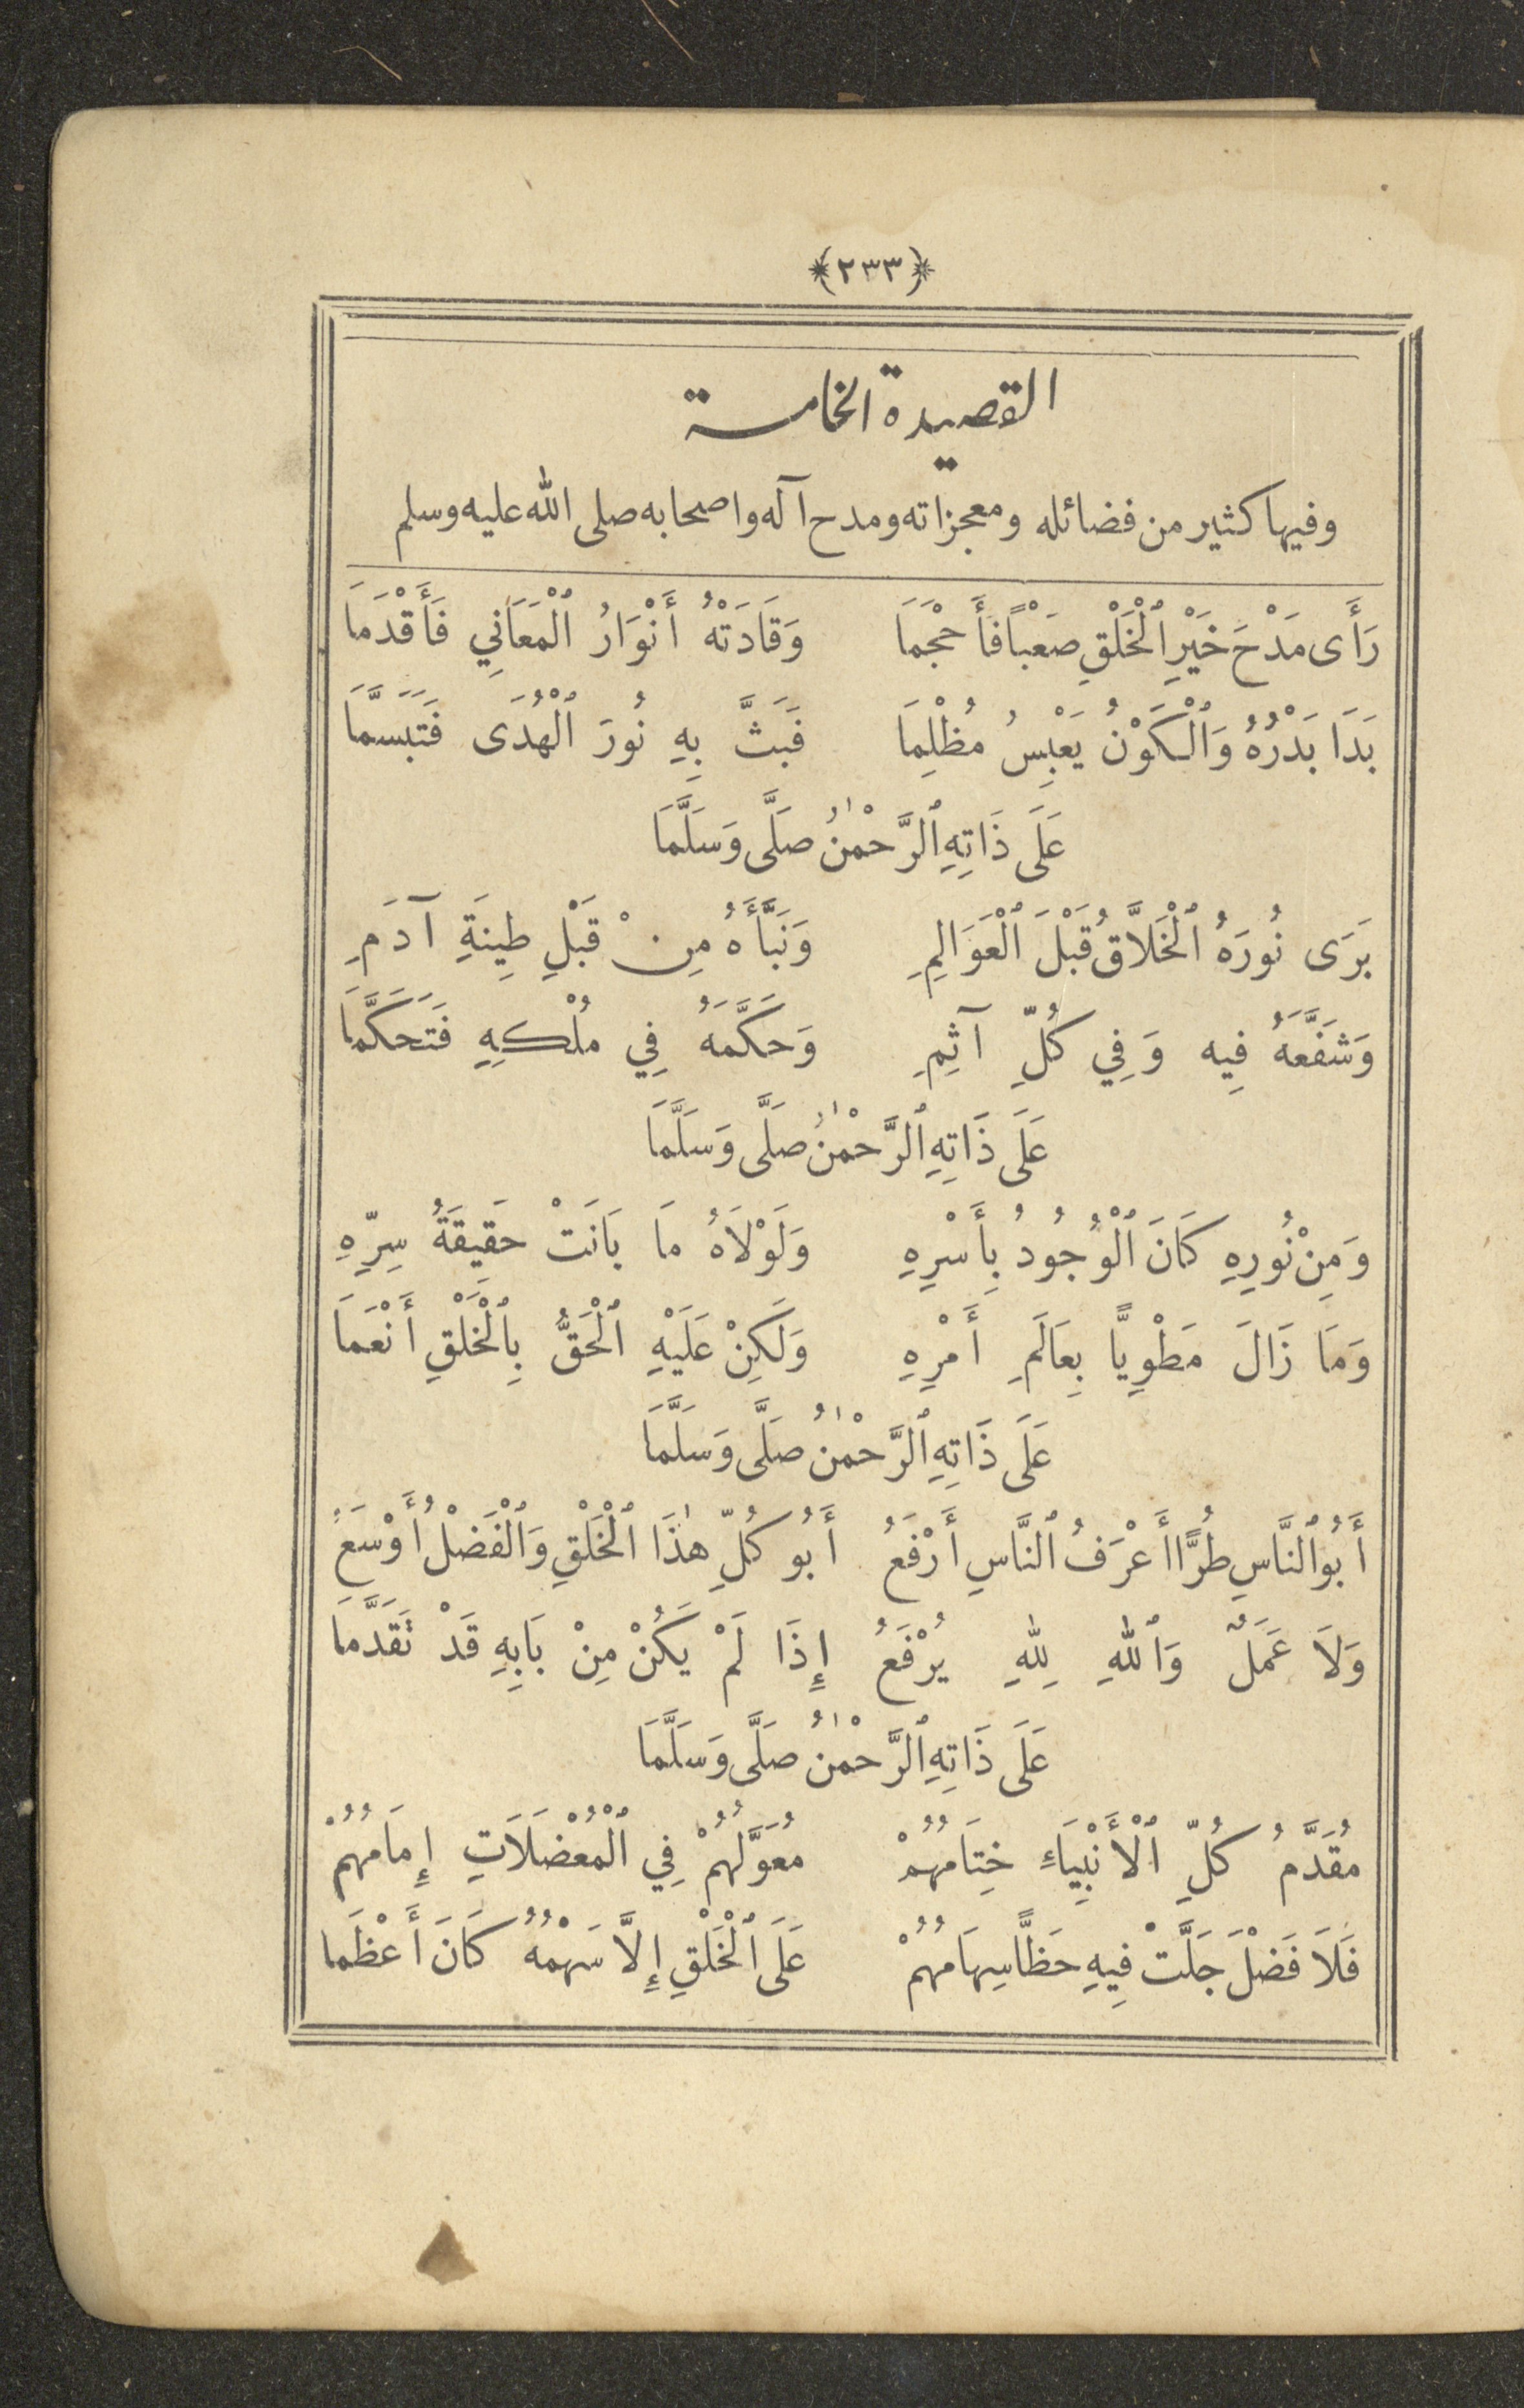 ﴿٢٣٣﴾
القصيدة الخامسة
وفيها كثير من فضائله ومعجزاته ومدح آله واصحابه صلى الله عليه وسلم
رَأَى مَدْحَ خَيْرِ ٱلْخَلْقِ صَعْبًا فَأَحْجَمَا وَقَادَتْهُ أَنْوَارُ ٱلْمَعَانِي فَأَقْدَمَا
بَدَا بَدْرُهُ وَٱلْكَوْنُ يَعْبِسُ مُظْلِمَا فَبَثَّ بِهِ نُورَ ٱلْهُدَى فَتَبَسَّمَا
عَلَى ذَاتِهِ ٱلرَّحْمٰنُ صَلَّى وَسَلَّمَا
بَرَى نُورَهُ ٱلْخَلَّاقُ قَبْلَ ٱلْعَوَالِمِ وَنَبَّأَهُ مِنْ قَبْلِ طِينَةِ آدَمِ
وَشَفَّعَهُ فِيهِ وَفِي كُلِّ آثِمِ وَحَكَّمَهُ فِي مُلْكِهِ فَتَحَكَّمَا
عَلَى ذَاتِهِ ٱلرَّحْمٰنُ صَلَّى وَسَلَّمَا
وَمِنْ نُورِهِ كَانَ ٱلْوُجُودُ بِأَسْرِهِ وَلَوْلَاهُ مَا بَانَتْ حَقِيقَةُ سِرِّهِ
وَمَا زَالَ مَطْوِيًّا بِعَالَمِ أَمْرِهِ وَلَكِنْ عَلَيْهِ ٱلْحَقُّ بِٱلْخَلْقِ أَنْعَمَا
عَلَى ذَاتِهِ ٱلرَّحْمٰنُ صَلَّى وَسَلَّمَا
أَبُو ٱلنَّاسِ طُرًّا أَعْرَفُ ٱلنَّاسِ أَرْفَعُ أَبُو كُلِّ هٰذَا ٱلْخَلْقِ وَٱلْفَضْلُ أَوْسَعُ
وَلَا عَمَلٌ وَٱللهِ لِلهِ يُرْفَعُ إِذَا لَمْ يَكُنْ مِنْ بَابِهِ قَدْ تَقَدَّمَا
عَلَى ذَاتِهِ ٱلرَّحْمٰنُ صَلَّى وَسَلَّمَا
مُقَدَّمُ كُلِّ ٱلْأَنْبِيَاءِ خِتَامُهُمْ مُعَوَّلُهُمْ فِي ٱلْمُعْضَلَاتِ إِمَامُهُمْ
فَلَا فَضْلَ جَلَّتْ فِيهِ حَظًّا سِهَامُهُمْ عَلَى ٱلْخَلْقِ إِلَّا سَهْمُهُ كَانَ أَعْظَمَا